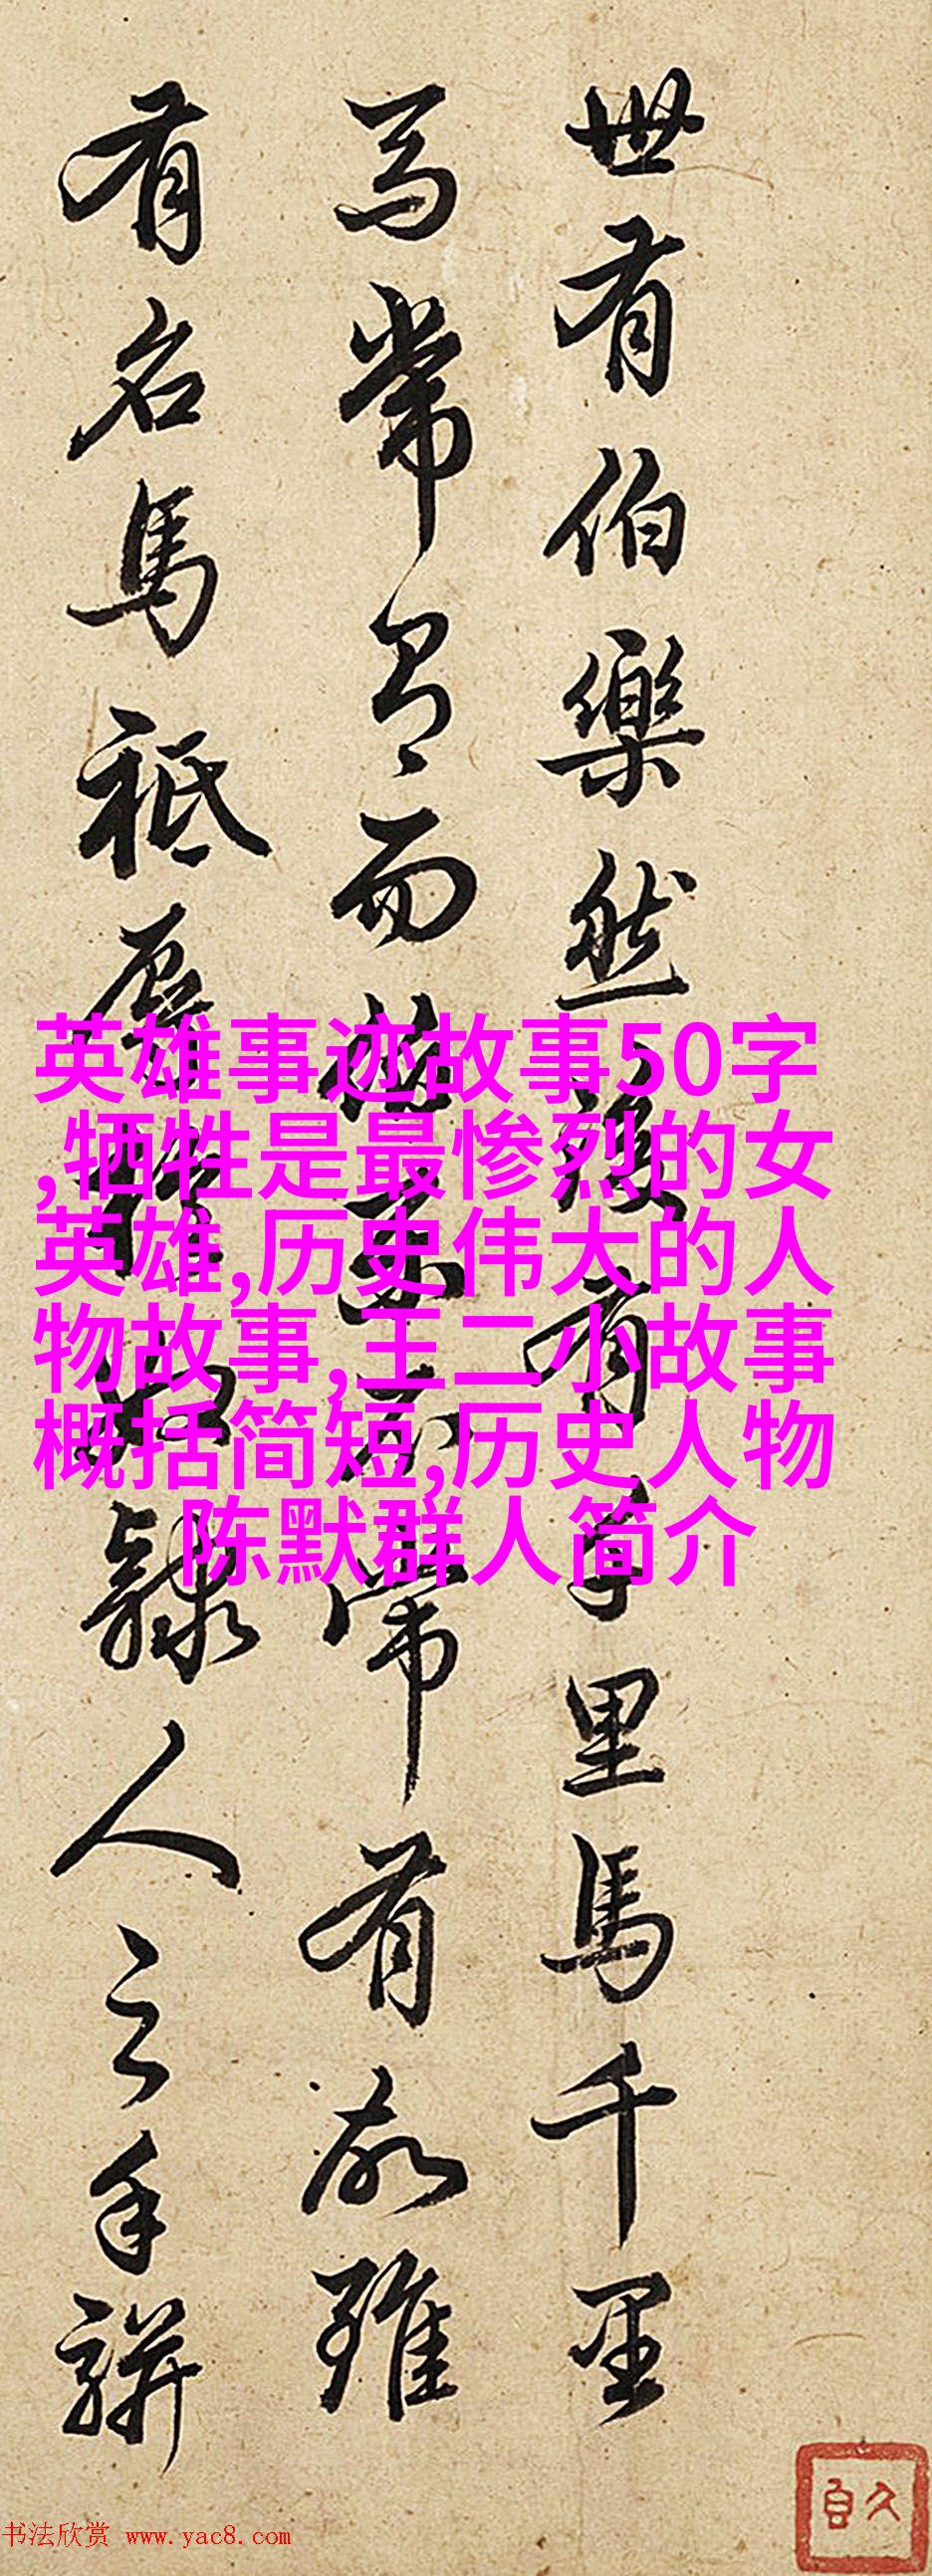 世有伯樂然後有千里馬千里
馬常有而伯樂不常有故雖
有名馬祗辱於奴隸人之手駢
英雄事迹故事50字
,牺牲是最惨烈的女
英雄,历史伟大的人
物故事,王二小故事
概括简短,历史人物
陈默群人简介
书法欣赏 www.yac8.com